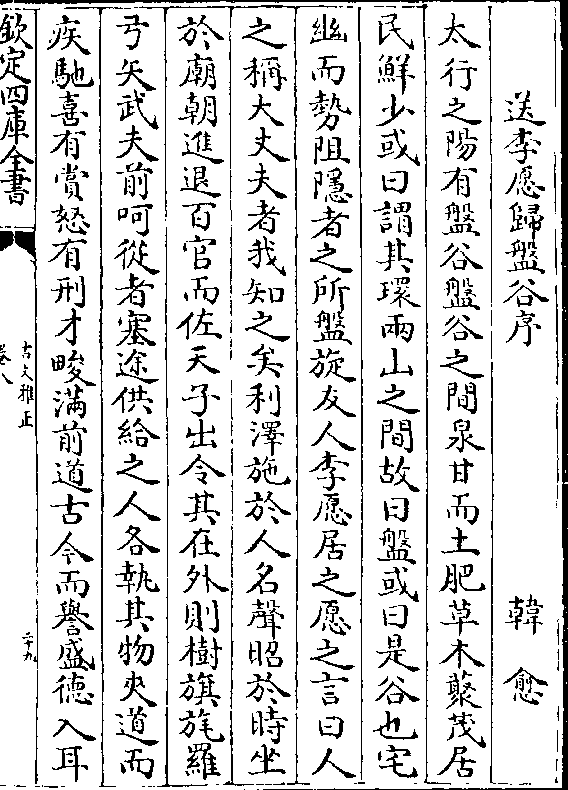 送李愿歸盤谷序　韓愈
太行之陽有盤谷盤谷之間泉甘而土肥草木藂茂居
民鮮少或曰謂其環兩山之間故曰盤或曰是谷也宅
幽而勢阻隱者之所盤旋友人李愿居之愿之言曰人
之稱大丈夫者我知之矣利澤施於人名聲昭於時坐
於廟朝進退百官而佐天子出令其在外則樹旗旄羅
弓矢武夫前呵從者塞途供給之人各執其物夾道而
疾馳喜有賞怒有刑才畯滿前道古今而譽盛德入耳
欽定四庫全書
古文雅正
卷八
二十九